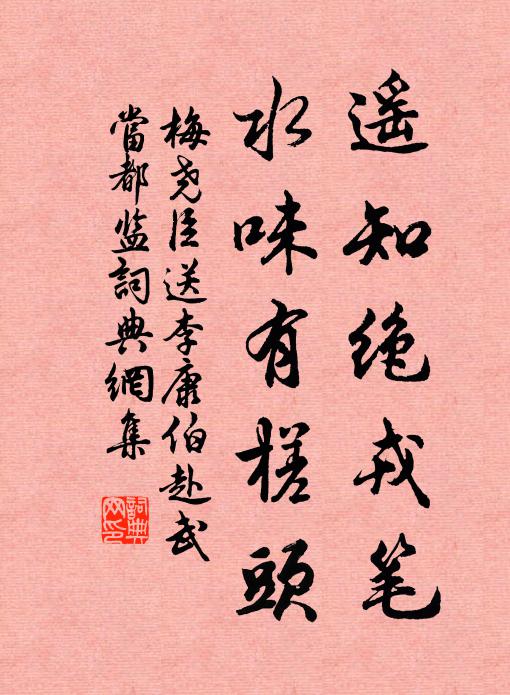 遥知绝戎笔
水味有槎頭
梅尧臣送李康伯赴武
當都监詞典網集
詞典网印